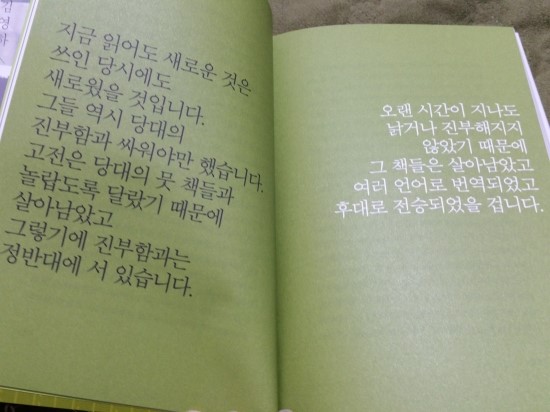 김영하
지금 읽어도 새로운 것은
쓰인 당시에도
새로웠을 것입니다.
그들 역시 당대의
진부함과 싸워야만 했습니다.
고전은 당대의 뭇 책들과
놀랍도록 달랐기 때문에
살아남았고
그렇기에 진부함과는
정반대에 서 있습니다.
오랜 시간이 지나도
낡거나 진부해지지
않았기 때문에
그 책들은 살아남았고
여러 언어로 번역되었고
후대로 전승되었을 겁니다.